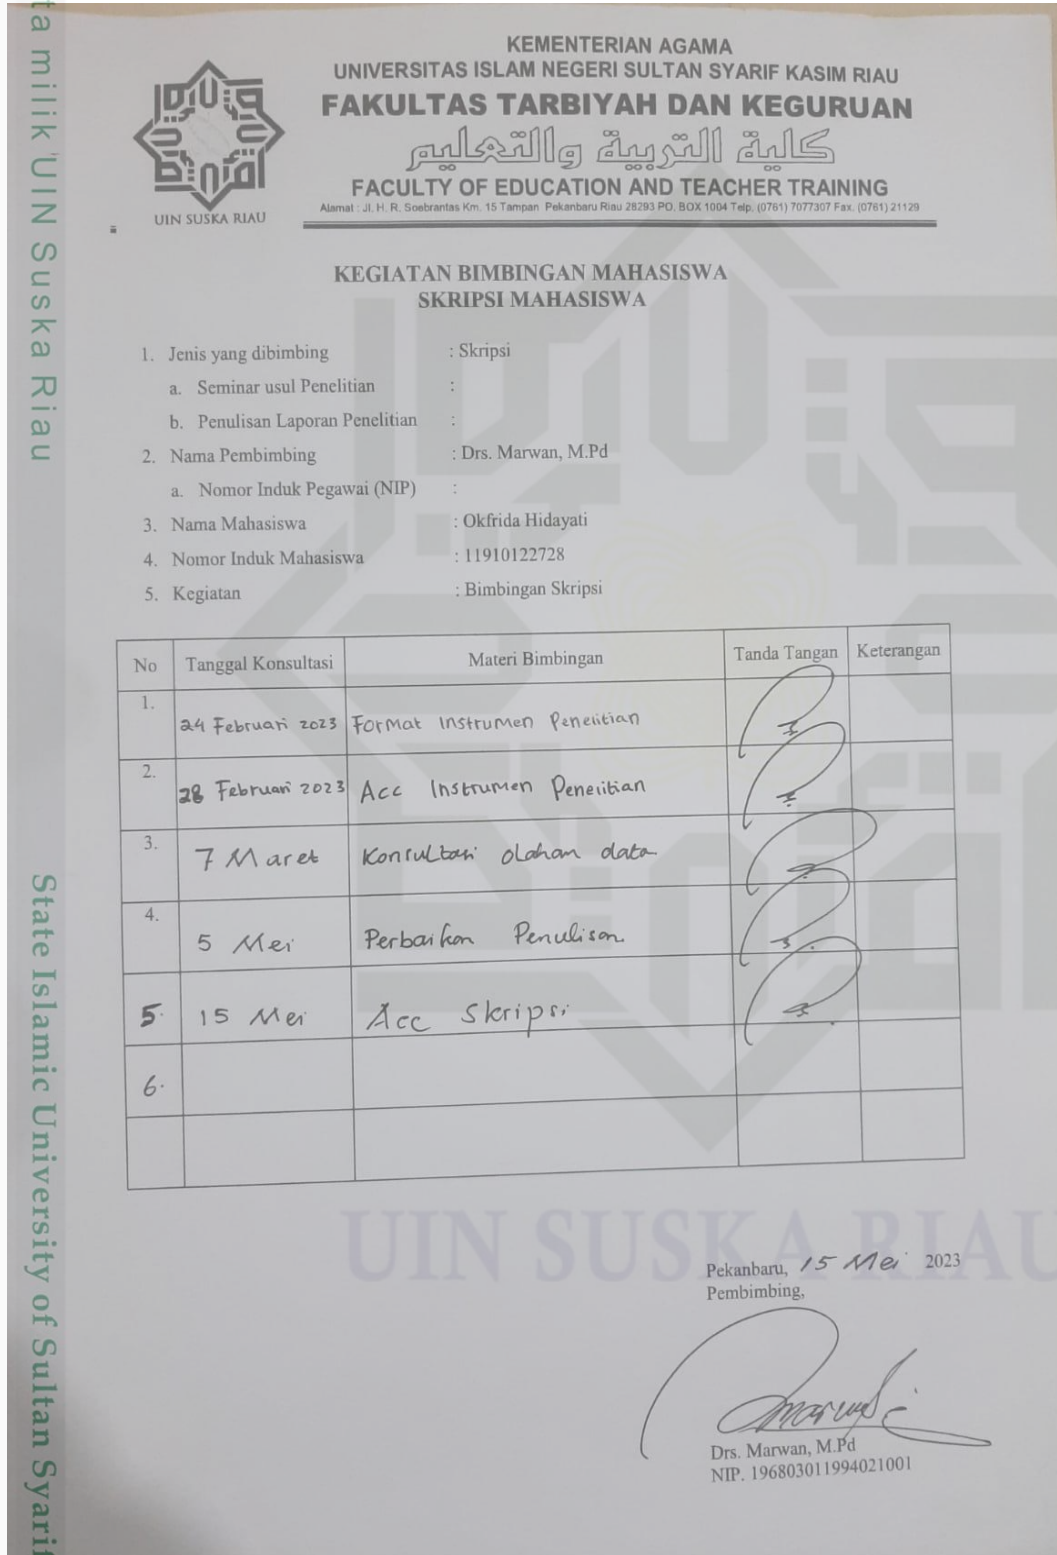 KEMENTERIAN AGAMA
UNIVERSITAS ISLAM NEGERI SULTAN SYARIF KASIM RIAU
FAKULTAS TARBIYAH DAN KEGURUAN
كلية التربية والتعليم
FACULTY OF EDUCATION AND TEACHER TRAINING
Alamat : Jl. H. R. Soebrantas Km. 15 Tampan Pekanbaru Riau 28293 PO. BOX 1004 Telp. (0761) 7077307 Fax. (0761) 21129
UIN SUSKA RIAU
KEGIATAN BIMBINGAN MAHASISWA
SKRIPSI MAHASISWA
1. Jenis yang dibimbing : Skripsi
a. Seminar usul Penelitian :
b. Penulisan Laporan Penelitian :
2. Nama Pembimbing : Drs. Marwan, M.Pd
a. Nomor Induk Pegawai (NIP) :
3. Nama Mahasiswa : Okfrida Hidayati
4. Nomor Induk Mahasiswa : 11910122728
5. Kegiatan : Bimbingan Skripsi
No Tanggal Konsultasi Materi Bimbingan Tanda Tangan Keterangan
1. 24 Februari 2023 Format Instrumen Penelitian
2. 28 Februari 2023 Acc Instrumen Penelitian
3. 7 Maret Konsultasi olahan data
4. 5 Mei Perbaikan Penulisan
5. 15 Mei Acc Skripsi
6.
UIN SUSKA RIAU
Pekanbaru, 15 Mei 2023
Pembimbing,
Drs. Marwan, M.Pd
NIP. 196803011994021001
ta milik UIN Suska Riau
State Islamic University of Sultan Syarif